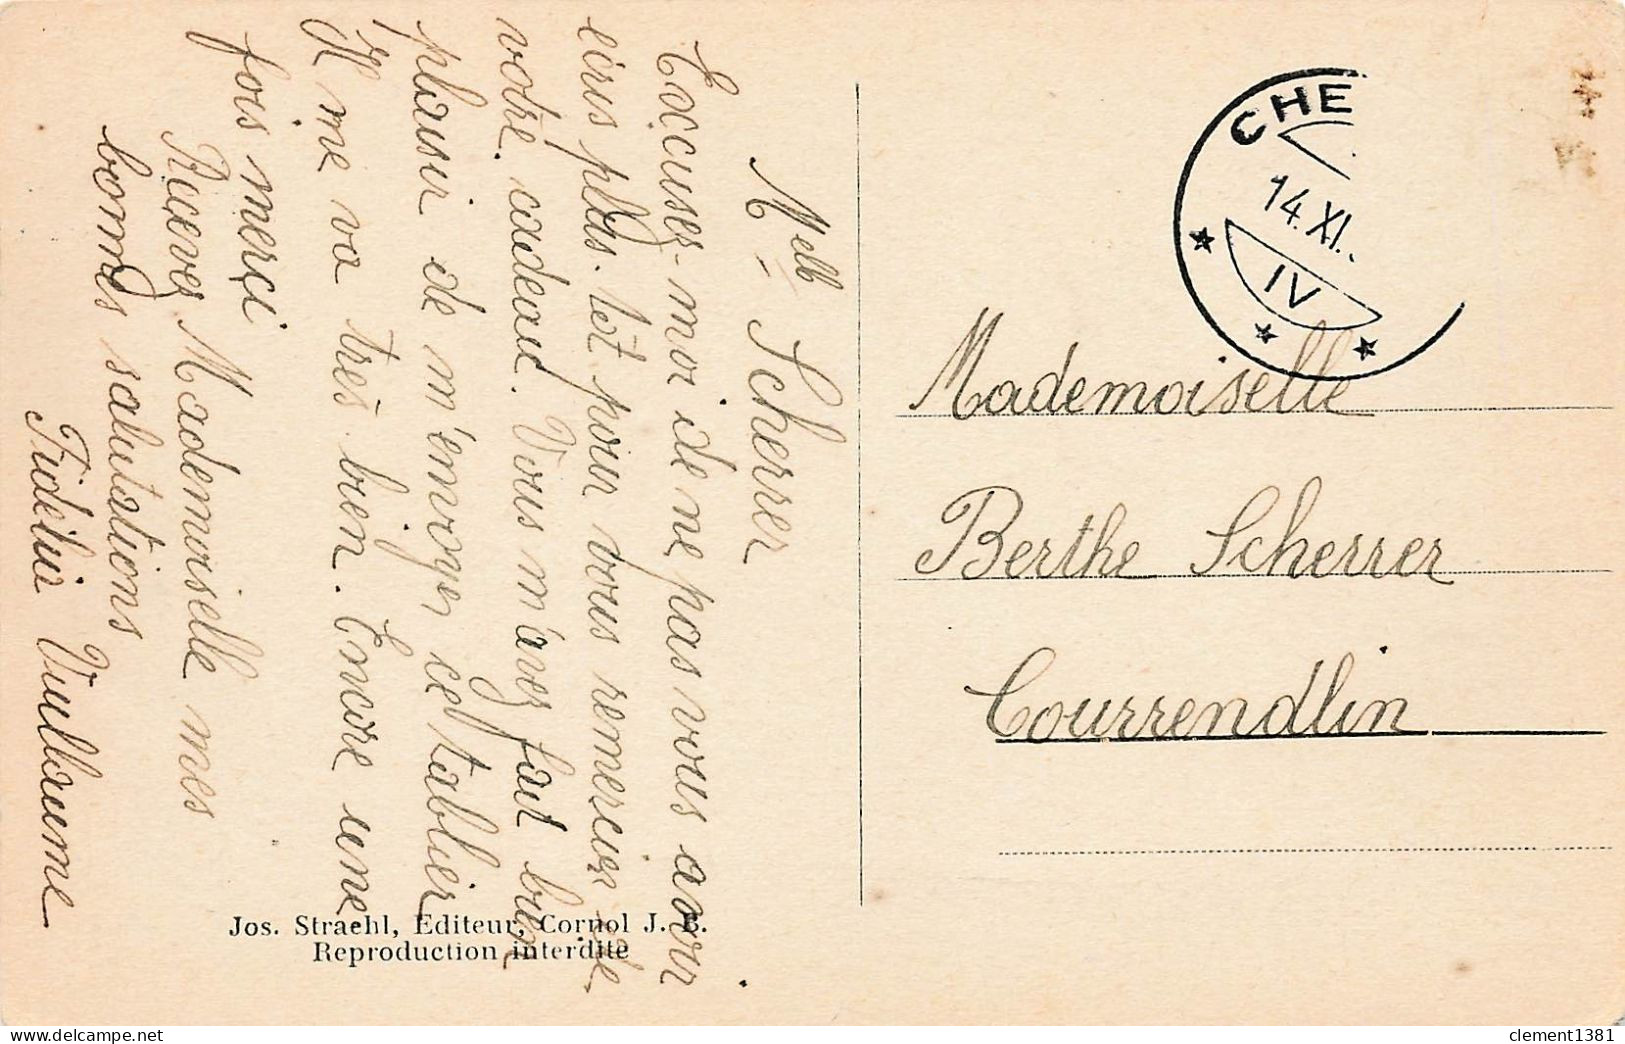 Melle Scherrer
Excusez-moi de ne pas vous avoir
écris plus tôt pour vous remercier de
votre cadeau. Vous m'avez fait bien
plaisir de m'envoyer ce tablier
Il me va très bien. Encore une
fois merci
Recevez Mademoiselle mes
bonnes salutations
Vuillaume
Jos. Straehl, Editeur, Cornol J. B.
Reproduction interdite
CHE
14. XI.
IV
Mademoiselle
Berthe Scherrer
Courrendlin
clement1381